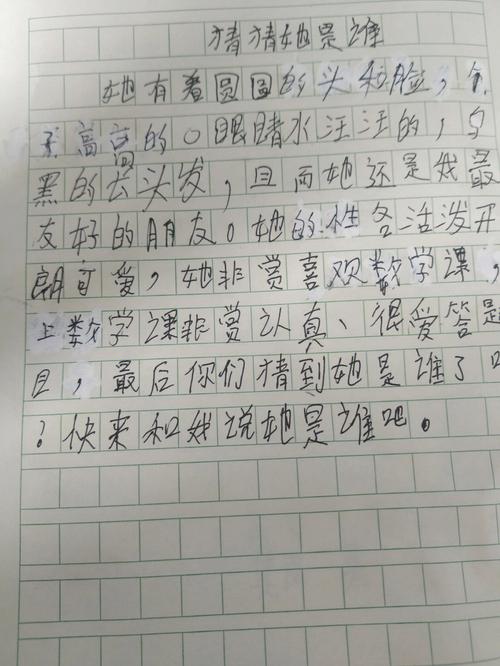 猜猜她是谁
她有着圆圆的头和脸，个
子高高的。眼睛水汪汪的，乌
黑的长头发，且而她还是我最
友好的朋友。她的性各活泼开
朗可爱，她非赏喜欢数学课，
上数学课非赏认真、很爱答是
目，最后你们猜到她是谁了吗
？快来和我说她是谁吧。